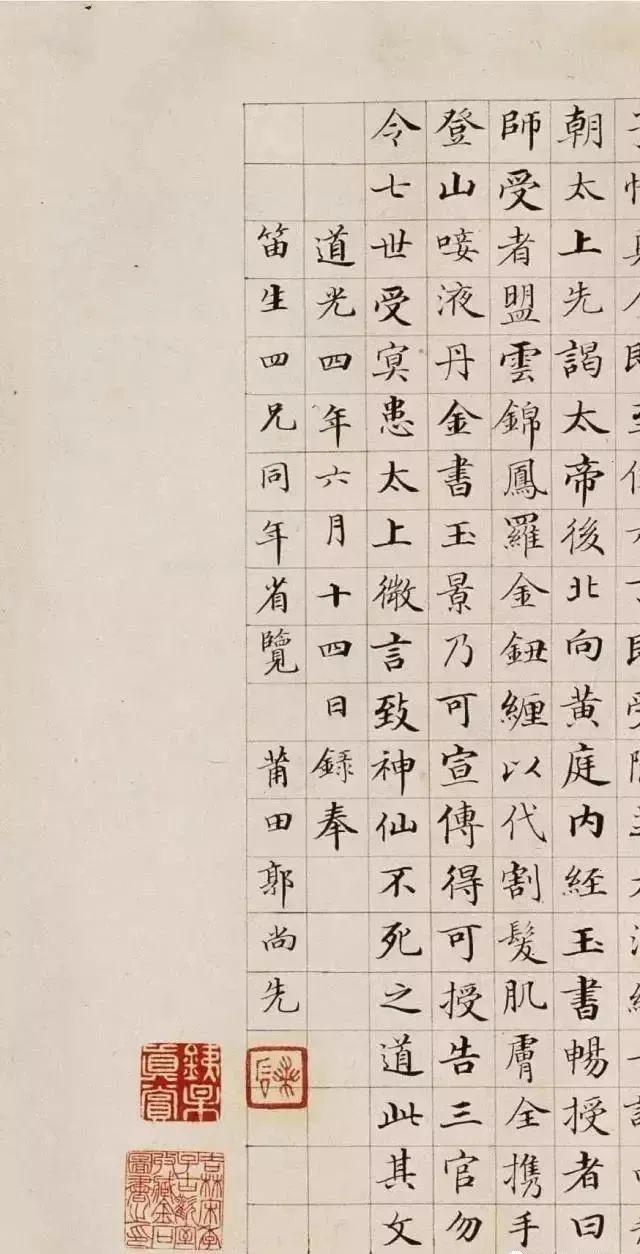 朝太上先謁太帝後北向黄庭内経玉書暢授者曰
師受者盟雲錦鳳羅金鈕纏以代割髮肌膚全携手
登山唼液丹金書玉景乃可宣傳得可授告三官勿
令七世受㝠患太上微言致神仙不死之道此其文
道光四年六月十四日録奉
笛生四兄同年省覽 莆田郭尚先
銕某真賞
吉林宋季子古歡室收藏金石圖書之印